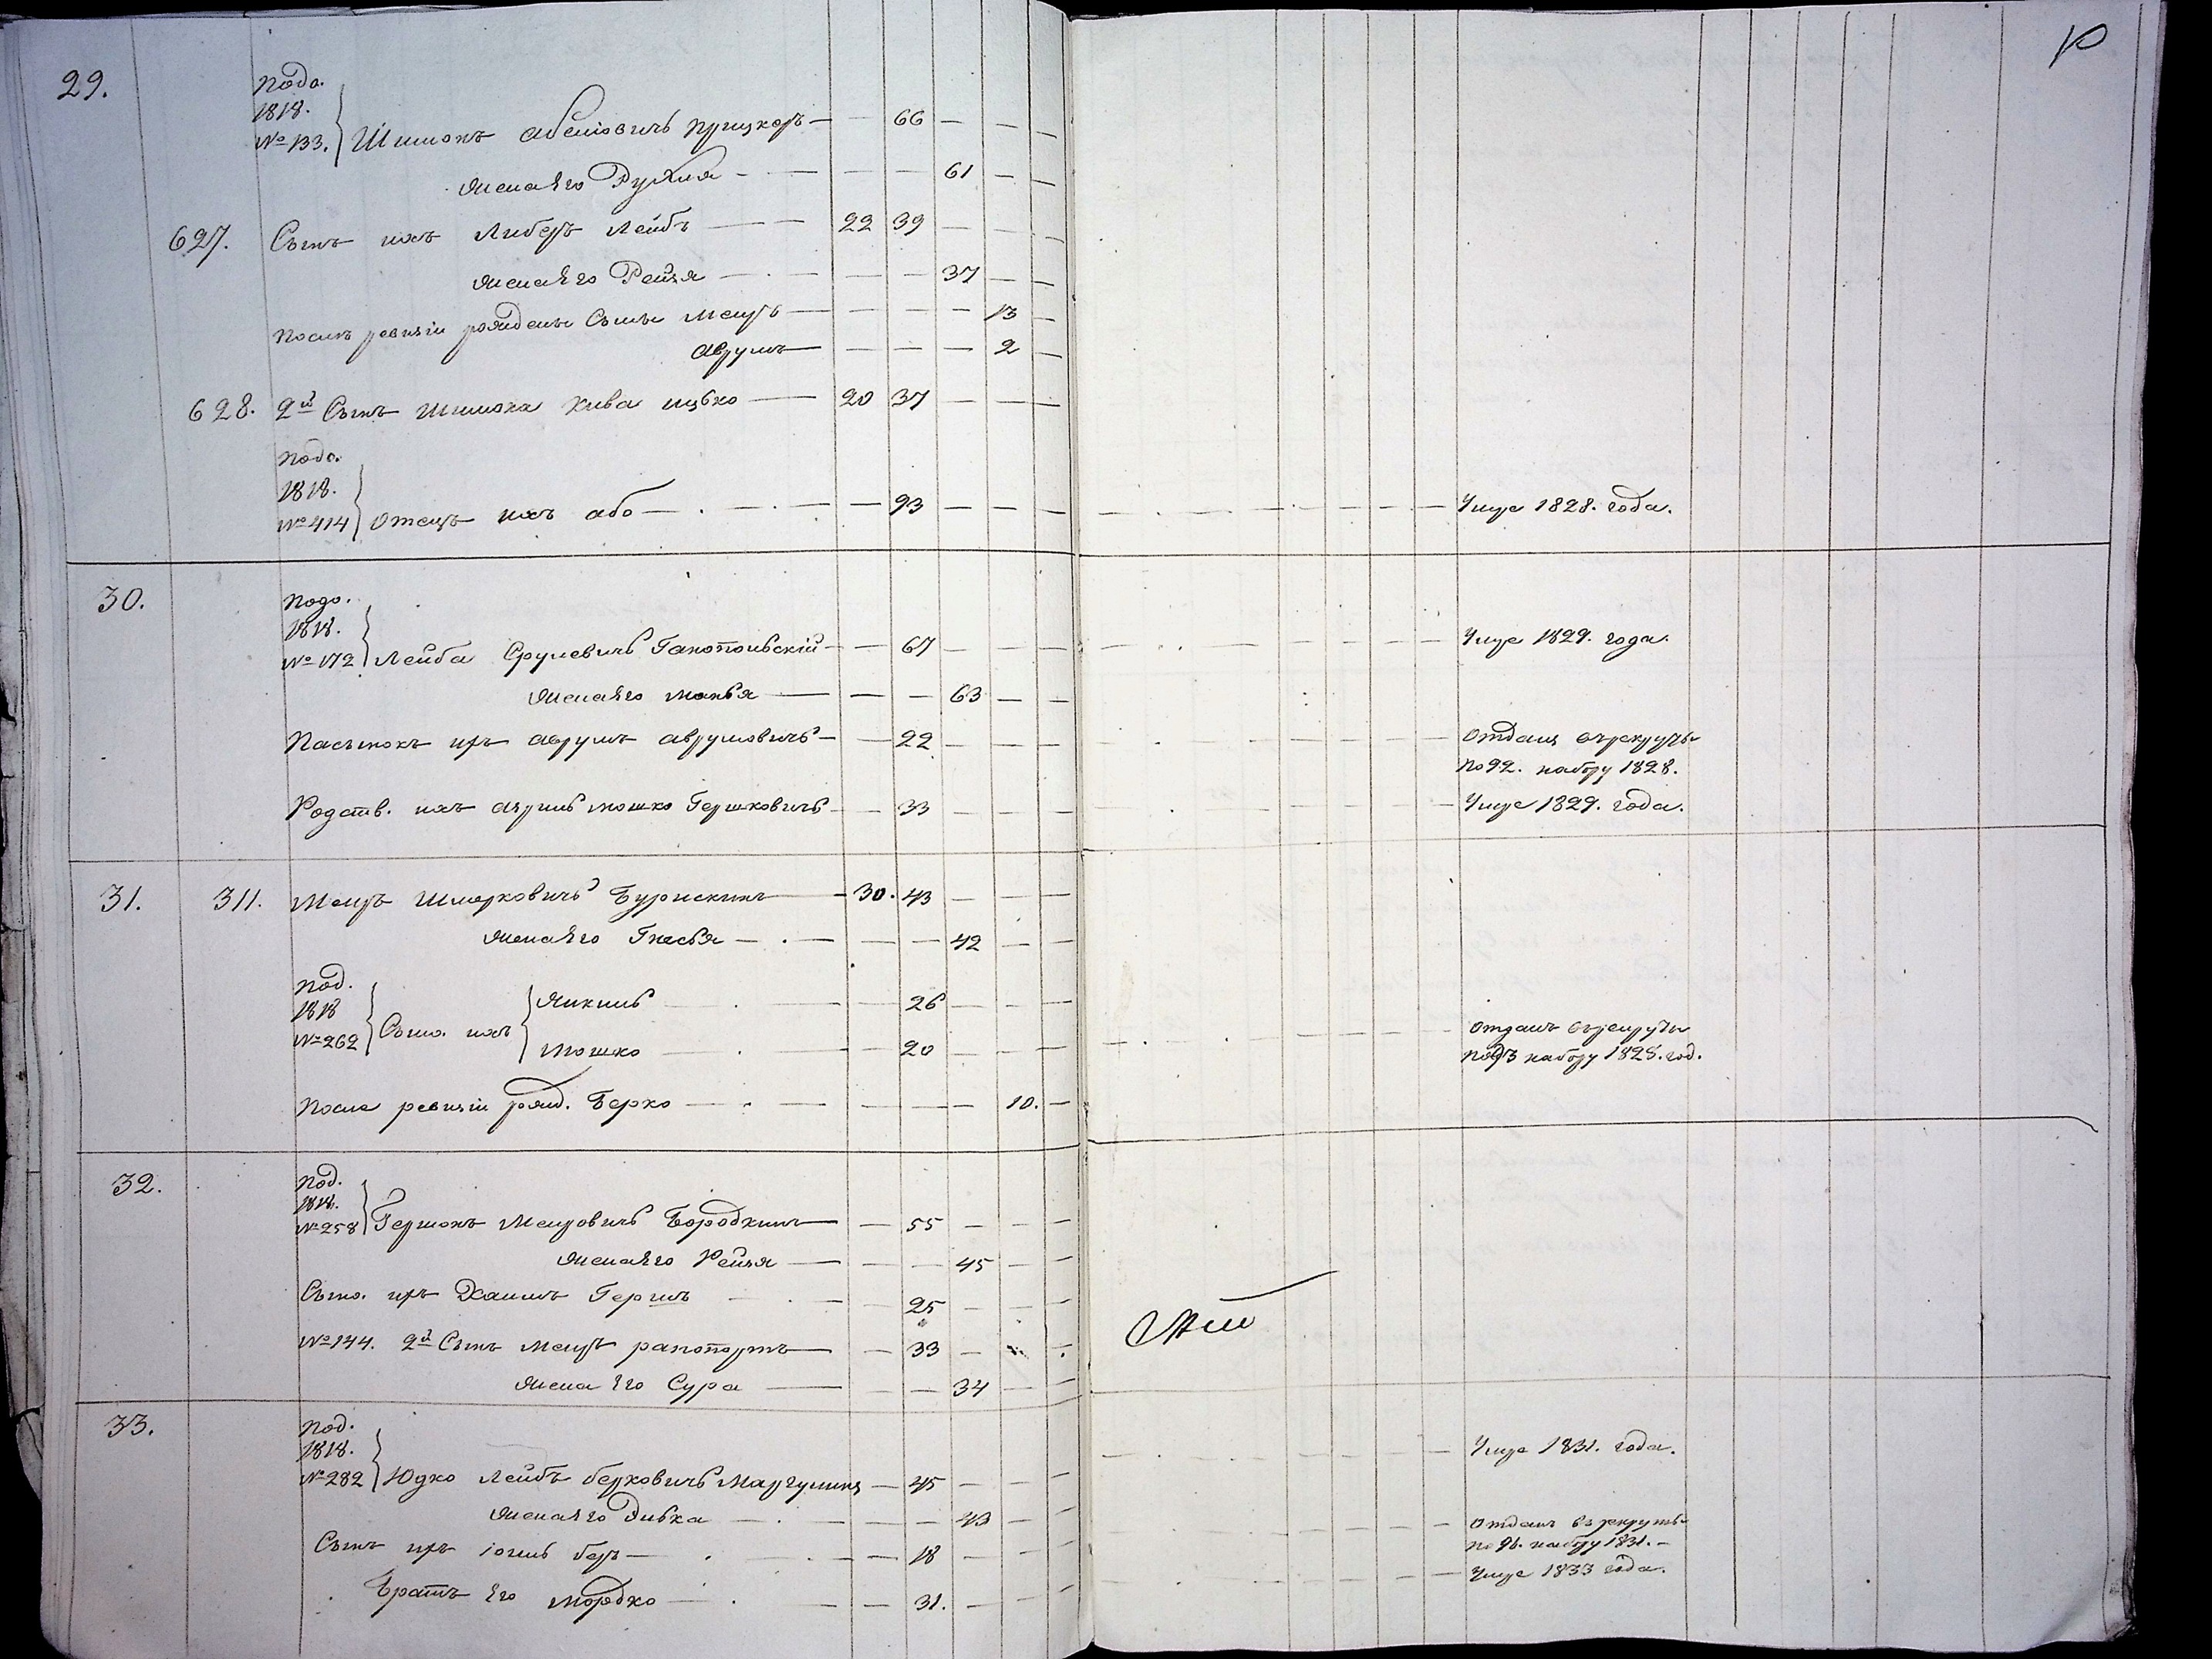 10
29. Подо.
1818.
№ 133. Шимонъ Абеліовичъ Прицкеръ — 66
жена Его Рухля — 61
627. Сынъ ихъ Либеръ Лейбъ — 22 39
жена Его Рейзя — 37
Послѣ ревизіи рождены Сыны Меиръ — 13
Аврумъ — 2
628. 2й Сынъ Шимона Кива Ицько — 20 37
Подо.
1818.
№ 414 Отецъ ихъ Або — 93 — Умре 1828. года.
30. Подо.
1818.
№ 172 Лейба Срулевичъ Гайопольскій — 67 — Умре 1829. года.
жена Его Манья — 63
Пасынокъ ихъ Аврумъ Аврумовичъ — 22 — Отданъ врекруты
по 92. набору 1828.
Родств. ихъ Азриль Мошко Гершковичъ — 33 — Умре 1829. года.
31. 311. Меиръ Шмерковичъ Бурискинъ — 30. 43
жена Его Гнесья — 42
Под.
1818
№ 262 Сыно. ихъ Янкиль — 26
Мошко — 20 — Отданъ врекруты
по 93 набору 1828. год.
После ревизіи рожд. Берко — 10.
32. Под.
1818.
№ 258 Гершонъ Меировичъ Бородкинъ — 55
жена Его Рейзя — 45
Сыно. ихъ Хаимъ Гершъ — 25
№ 144. 2й Сынъ Меиръ рапопортъ — 33
жена Его Сура — 34
33. Под.
1818.
№ 282 Юдко Лейбъ Берковичъ Маргулисъ — 45 — Умре 1831. года.
жена Его Ривка — 43
Сынъ ихъ Іоиль Беръ — 18 — Отданъ въ рекруты
по 96. набору 1831.
Братъ Его Мордко — 31. — Умре 1833 года.